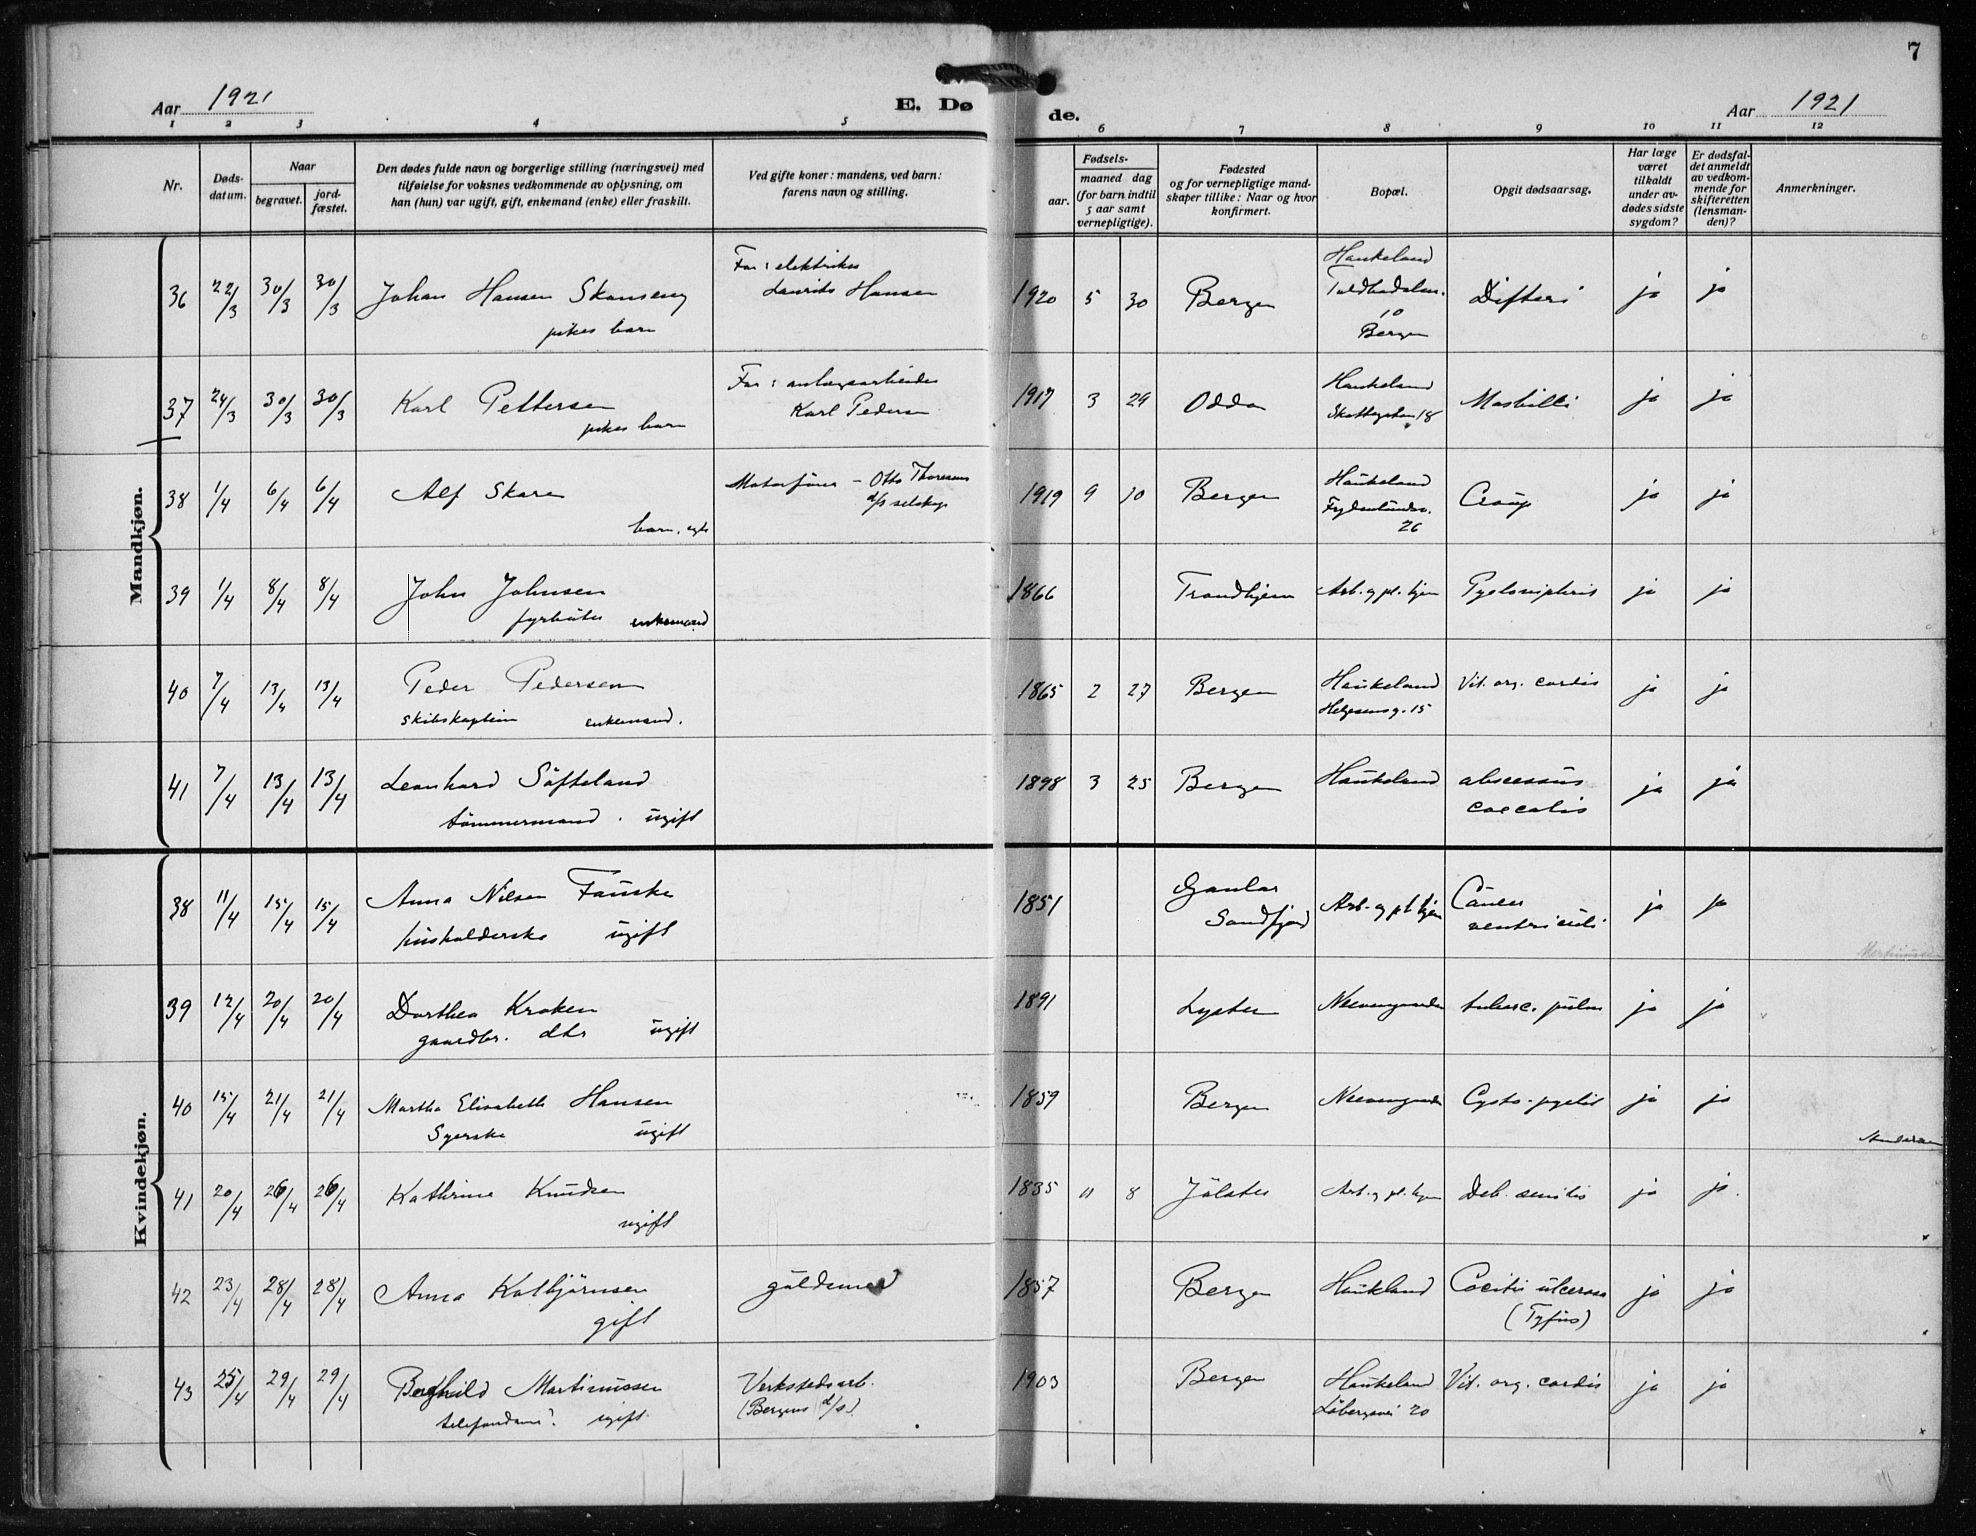 7
Aar 1921
E. Dø
de.
Aar 1921
1 2 3 4 5 6 7 8 9 10 11 12
Nr.
Døds-
datum.
Naar
begravet.
jord-
fæstet.
Den dødes fulde navn og borgerlige stilling (næringsvei) med
tilføielse for voksnes vedkommende av oplysning, om
han (hun) var ugift, gift, enkemand (enke) eller fraskilt.
Ved gifte koner: mandens, ved barn:
farens navn og stilling.
Fødsels-
aar.
maaned dag
(for barn indtil
5 aar samt
vernepligtige).
Fødested
og for vernepligtige mand-
skaper tillike: Naar og hvor
konfirmert.
Bopæl.
Opgit dødsaarsag.
Har læge
været
tilkaldt
under av-
dødes sidste
sygdom?
Er dødsfal-
det anmeldt
av vedkom-
mende for
skifteretten
(lensman-
den)?
Anmerkninger.
Mandkjøn.
36 22/3 30/3 30/3 Johan Hansen Skanseng
pikes barn
Far: elektriker
Laurits Hansen
1920 5 30 Bergen
Haukeland
10
Bergen
Difteri ja ja
37 24/3 30/3 30/3 Karl Pettersen
pikes barn
Far: anlægsarbeider
Karl Pedersen
1917 3 29 Odda
Haukeland
18
ja ja
38 1/4 6/4 6/4 Alf Skare
barn, egte
Motorfører - Otto Thoresens
d/s selskap
1919 9 10 Bergen
Haukeland
Frydenlundsv.
26
Croup ja ja
39 1/4 8/4 8/4 John Johnsen
fyrbøter enkemand
1866 Trondhjem Arb. og pl. hjem ja ja
40 7/4 13/4 13/4 Peder Pedersen
skibskaptein enkemand.
1865 2 27 Bergen
Haukeland
Helgesensg. 15
Vit. org. cordis ja ja
41 7/4 13/4 13/4 Leonhard Söfteland
tömmermand. ugift
1898 3 25 Bergen Haukeland
abscessus
coecalis
ja ja
Kvindekjøn.
38 11/4 15/4 15/4 Anna Nilsen Fauske
husholderske ugift
1851
Gaular
Sandfjord
Arb. og pl. hjem
Cancer
ventriculi
ja ja
39 12/4 20/4 20/4 Dorthea Kroken
gaardbr. dtr ugift
1891 Lyster Neevengaarden tuberc. pulm ja ja
40 15/4 21/4 21/4 Martha Elisabeth Hansen
Syerske ugift
1859 Bergen Neevengaarden Cysto-pyelit ja ja
41 20/4 26/4 26/4 Kathrine Knudsen
ugift
1835 11 8 Jölster Arb. og pl. hjem Deb. senilis ja ja.
42 23/4 28/4 28/4 Anna Kolbjörnsen
gift
guldsmed
1857 Bergen Haukland
Coecitis ulcerosa
(Tyfus)
ja ja
43 25/4 29/4 29/4 Borghild Martinussen
ugift
Verkstedsarb.
(Bergens d/s)
1903 Bergen
Haukeland
Løbergsvei 20
Vit. org. cordis ja ja